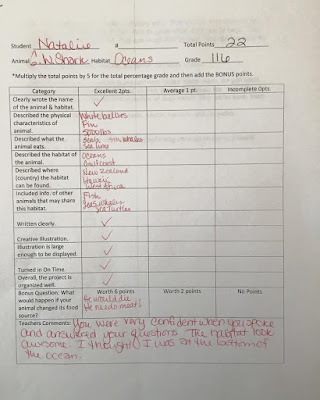 Student Natalie # Total Points 22
Animal G.W Shark Habitat Oceans Grade 116
*Multiply the total points by 5 for the total percentage grade and then add the BONUS points.
Category Excellent 2pts. Average 1 pt. Incomplete 0pts.
Clearly wrote the name
of the animal & habitat. ✓
Described the physical White bellies
characteristics of Fin
animal. 5000lbs
Described what the Seals small whales
animal eats. Sea lions
Described the habitat of Oceans
the animal.
Described where New Zealand
(country) the habitat Hawaii
can be found. West Africa
Included info. of other Fish
animals that may share Seals, whales
this habitat. Sea Turtles
Written clearly. ✓
Creative Illustration. ✓
Illustration is large ✓
enough to be displayed.
Turned in On Time. ✓
Overall, the project is ✓
organized well.
Bonus Question: What Worth 6 points Worth 2 points No Points
would happen if your He would die
animal changed its food He needs meat!
source?
Teachers Comments: You were very confident when you spoke
and answered your questions. The habitat look
awesome. I thought I was at the bottom of
the ocean.